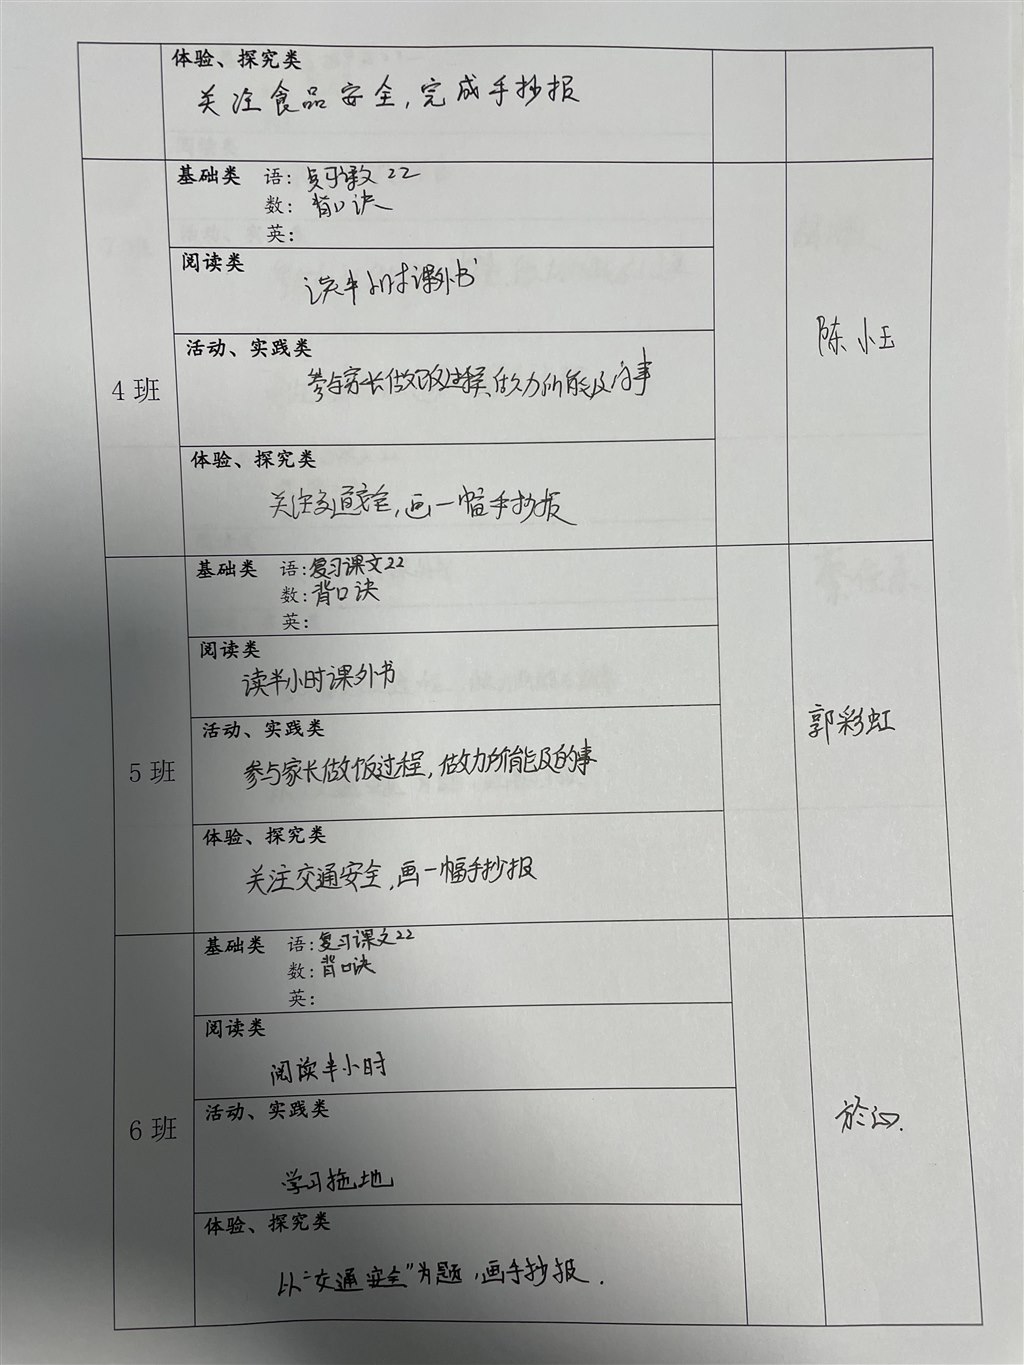 体验、探究类
关注食品安全,完成手抄报
4班
基础类 语: 复习课文22
数: 背口诀
英:
阅读类
读半小时课外书
活动、实践类
参与家长做饭过程、做力所能及的事
体验、探究类
关注交通安全,画一幅手抄报
陈小玉
5班
基础类 语:复习课文22
数:背口诀
英:
阅读类
读半小时课外书
活动、实践类
参与家长做饭过程,做力所能及的事
体验、探究类
关注交通安全,画一幅手抄报
郭彩虹
6班
基础类 语:复习课文22
数:背口诀
英:
阅读类
阅读半小时
活动、实践类
学习拖地
体验、探究类
以“交通安全”为题,画手抄报.